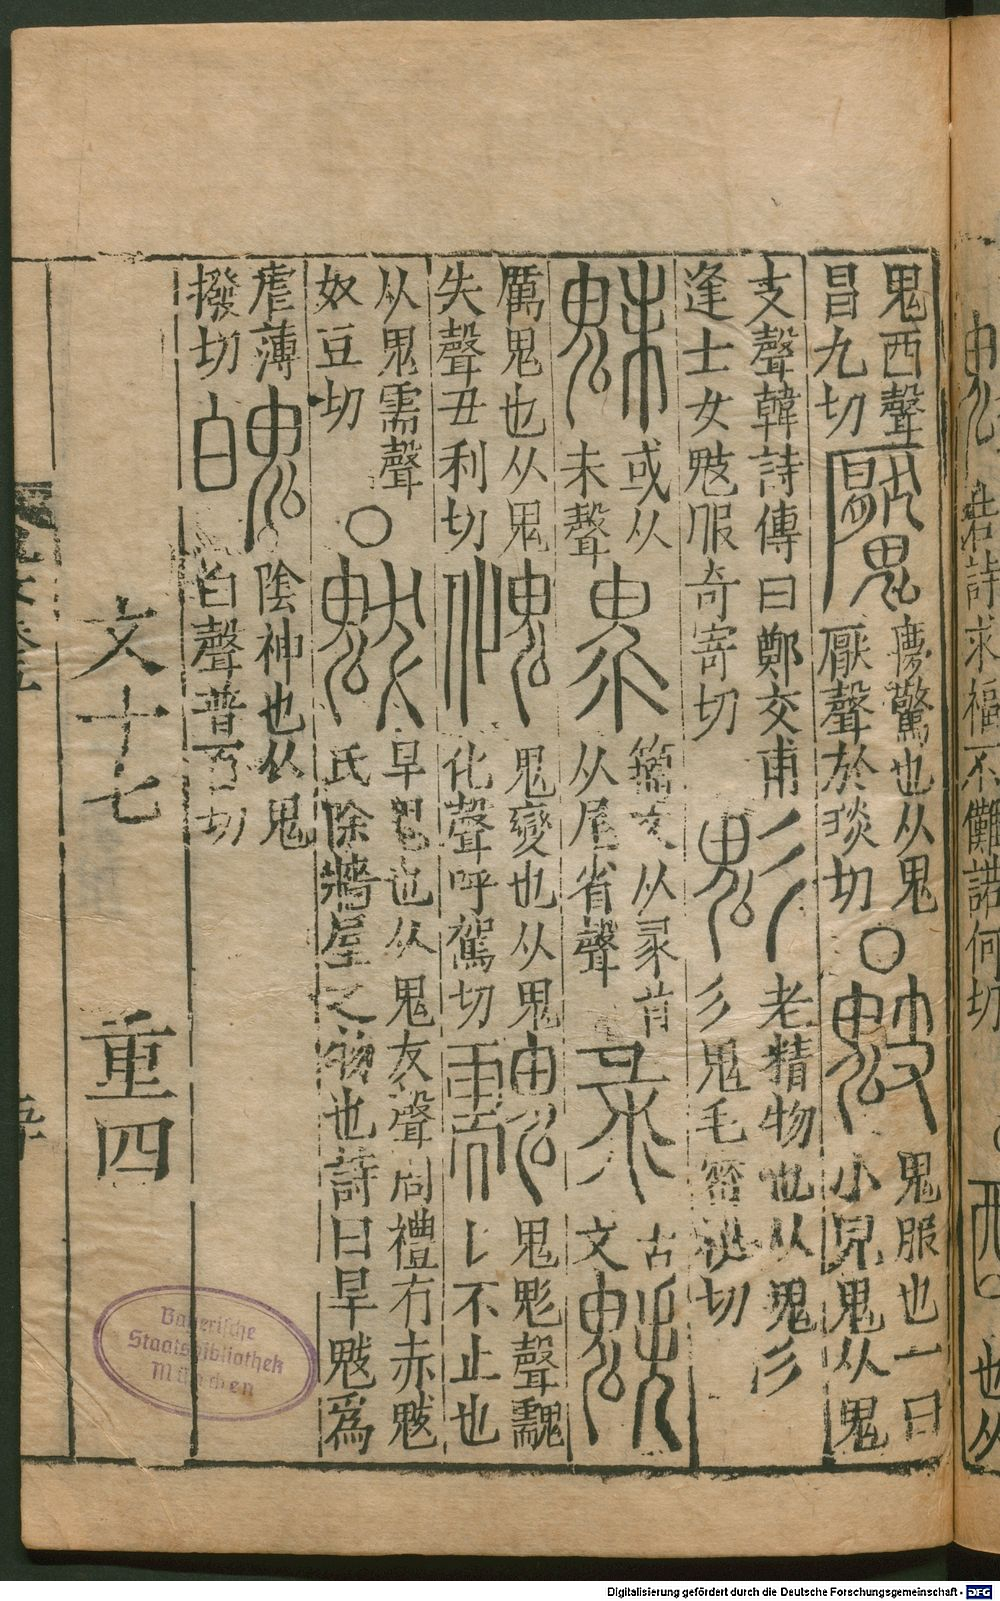 鬼酉聲
昌九切
䰨
慶驚也从鬼
厭聲於琰切
○
鬾
鬼服也一曰
小兒鬼从鬼
支聲韓詩傳曰鄭交甫
逢士女鬾服奇寄切
鬽
老精物也从鬼彡
彡鬼毛密祕切
魅
或从
未聲
籀文从彖首
从尾省聲
古
文
魑
厲鬼也从鬼
失聲丑利切
魤
鬼變也从鬼
化聲呼駕切
鬼彪聲䰰
𠄌不止也
从鬼需聲
奴豆切
○
魃
旱鬼也从鬼犮聲周禮有赤魃
氏除牆屋之物也詩曰旱魃爲
虐薄
撥切
魄
陰神也从鬼
白聲普百切
文十七 重四
Bayerische
Staatsbibliothek
München
若詩求福不儺諾何切
也从
Digitalisierung gefördert durch die Deutsche Forschungsgemeinschaft - DFG